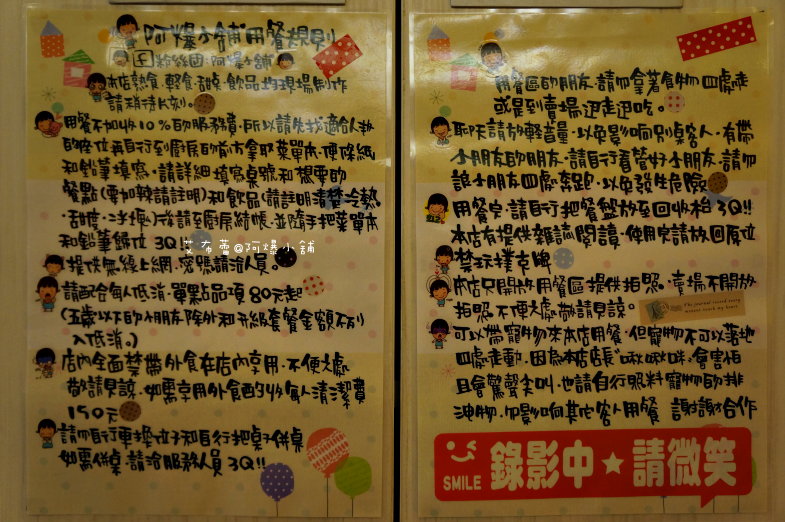 阿爆小舖用餐規則
粉絲團:阿爆小舖
本店熟食.輕食.甜桌.飲品均現場制作
請稍待片刻。
用餐不加收10%的服務費,所以請先找適合人數
的座位再自行到廚房的前方拿取菜單本.便條紙
和鉛筆填寫.請詳細填寫桌號和想要的
餐點(要加辣請註明)和飲品(請註明清楚冷熱
.甜度.冰塊)後請至廚房結帳.並隨手把菜單本
和鉛筆歸位 3Q!!
艾布蕾@阿爆小舖
提供無線上網.密碼請洽人員。
請配合每人低消.單點品項80元起
(五歲以下的小朋友除外和升級套餐金額不列
入低消。)
店內全面禁帶外食在店內享用.不便之處
敬請見諒.如需享用外食酌收每人清潔費
150元
請勿自行更換位子和自行把桌子併桌
如需併桌.請洽服務人員3Q!!
用餐區的朋友.請勿拿著食物四處走
或是到賣場逛走逛吃。
聊天請放輕音量.以免影响到別桌客人.有帶
小朋友的朋友.請自行看管好小朋友.請勿
讓小朋友四處奔跑.以免發生危險
用餐完.請自行把餐盤放至回收檯 3Q!!
本店有提供雜誌閱讀.使用完請放回原位
禁玩撲克牌
本店只開放用餐區提供拍照.賣場不開放
拍照.不便之處敬請見諒。
可以帶寵物來本店用餐.但寵物不可以落地
四處走動.因為本店店長"啾啾咪.會害怕
且會驚聲尖叫.也請自行照料寵物的排
洩物.勿影响其它客人用餐 謝謝合作
SMILE 錄影中★請微笑